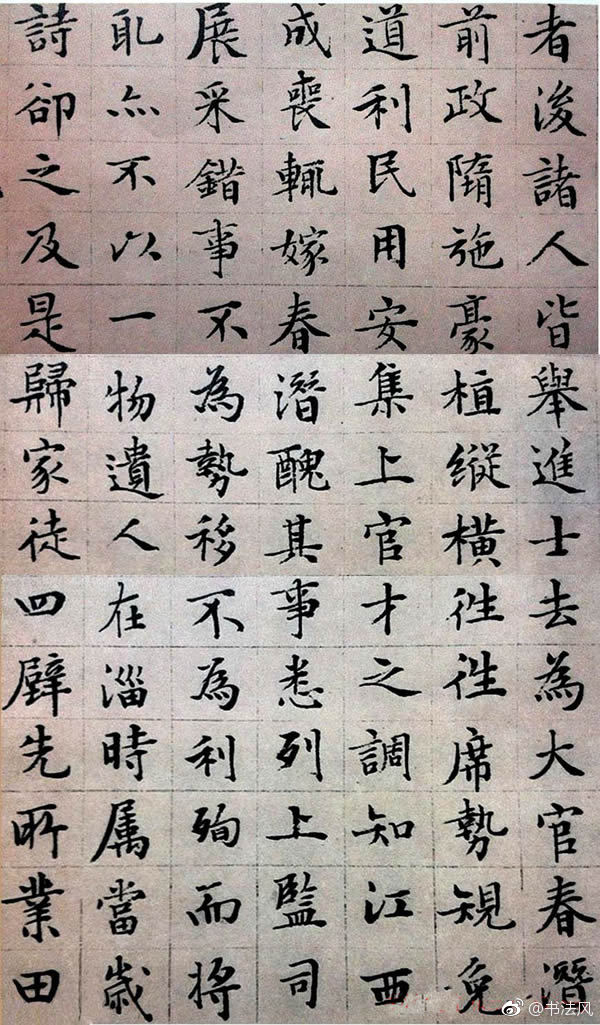 者後諸人皆舉進士去為大官春潛
前政隋施豪植縱橫往往席勢規免
道利民用安集上官才之調知江西
成喪輒嫁春潛醜其事悉列上監司
展采錯事不為勢移不為利殉而將
恥亦不以一物遺人在淄時屬當歲
詩卻之及是歸家徒四壁先所業田
@书法风